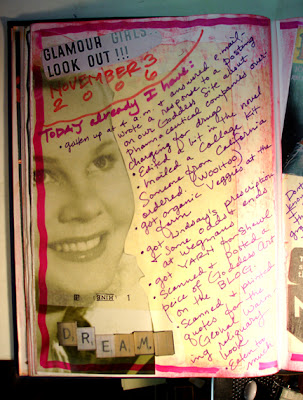 GLAMOUR GIRLS...
LOOK OUT !!!
NOVEMBER 3
2006
TODAY already I have:
• gotten up at 9 a.m. + answered e-mail
wrote a response to a posting
on our Goddess Site about
pharmaceutical companies over
charging for drugs
• Edited a bit of the novel
• mailed a Collage Kit
Someone from California
ordered. (WOOHOO)
• got organic veggies at the
farm
• got Lindsay's prescription
& some odds & ends
at wegmans
• got YARN for shawl
• Scanned & posted a
piece of Goddess Art
on the BLOG.
• Scanned & printed
quotes for the
"Global Warm
ing reliquary"
book
• Eaten too
much
D R E A M